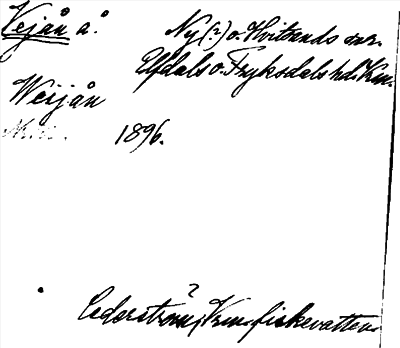 Vejån å.
Ny (?) o. Hvitsands snr.
Elfdals o. Fryksdals hd. Vrm.
Weijån
1896.
?
Cederström, Vrm. fiskevatten.